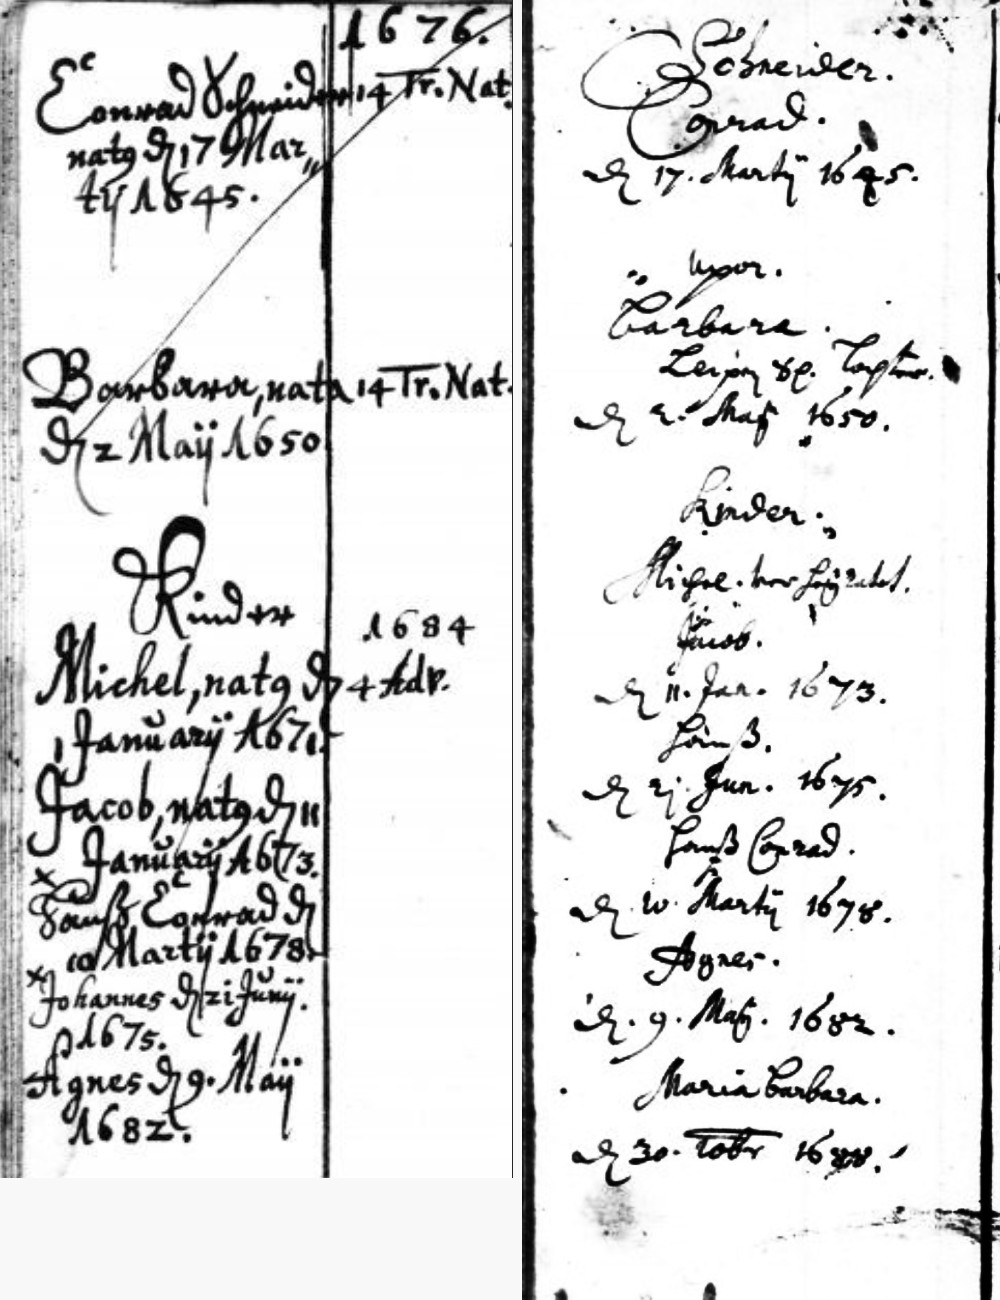 1676.
Conrad Schneider 14 Tr. Nat.
natq d 17 Mar„
tij 1645.
Barbara, nata 14 Tr. Nat.
d 2 Maÿ 1650
Kinder
1684
Michel, natq d 4 Adv.
1 Januarÿ 1671.
Jacob, natq d 11
Januarÿ 1673.
x
Hanß Conrad d
10 Martÿ 1678.
x
Johannes d 21 Junÿ.
1675.
Agnes d 9. Maÿ
1682.
Schneider.
Conrad.
d 17. Martÿ 1645.
uxor.
Barbara.
d 2. Maÿ 1650.
Kinder.
Michel. verheÿratet.
Jacob.
d 11. Jan. 1673.
Hanß.
d 21. Jun. 1675.
Hanß Conrad.
d 10. Martÿ 1678.
Agnes.
d. 9. Maÿ. 1682.
Maria Barbara.
d 30. 1688.